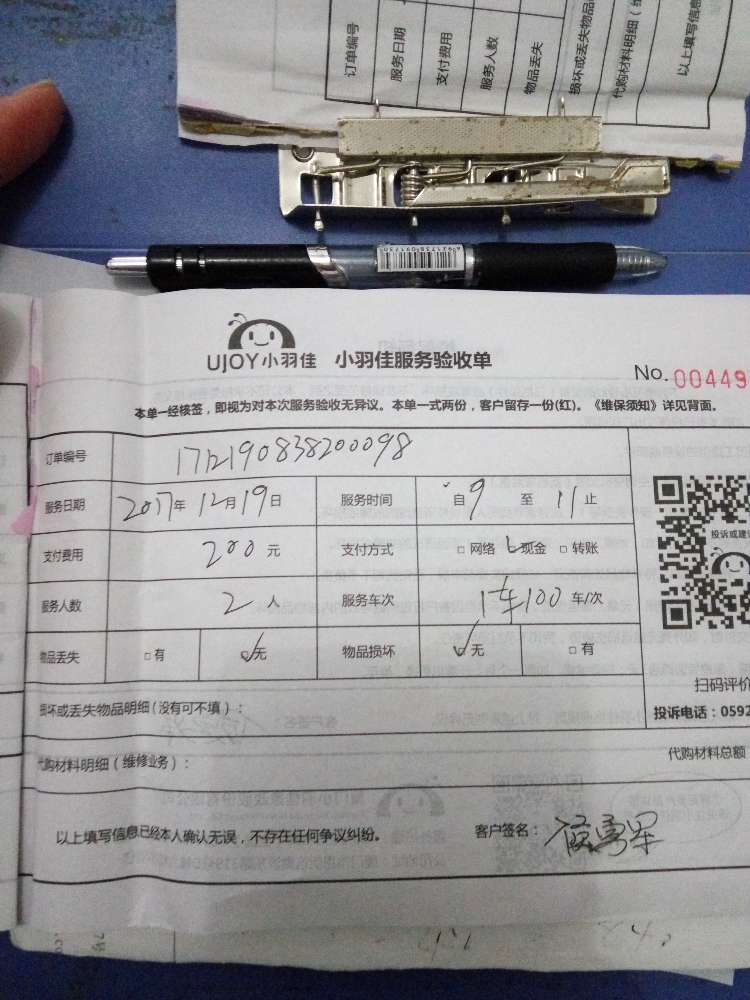 订单编号
服务日期
支付费用
服务人数
物品丢失
损坏或丢失物品
代购材料明细（维
以上填写信息
6921738091730
UJOY小羽佳 小羽佳服务验收单
No. 00449
本单一经核签，即视为对本次服务验收无异议。本单一式两份，客户留存一份(红)。《维保须知》详见背面。
订单编号 1712190838200098
服务日期 2017年12月19日 服务时间 自9至11止
支付费用 200元 支付方式 □网络 □现金 □转账
投诉或建议
服务人数 2人 服务车次 1车100车/次
物品丢失 □有 □无 物品损坏 □无 □有
扫码评价
损坏或丢失物品明细(没有可不填)：
投诉电话：0592
代购材料明细（维修业务）：
代购材料总额
以上填写信息已经本人确认无误，不存在任何争议纠纷。 客户签名：